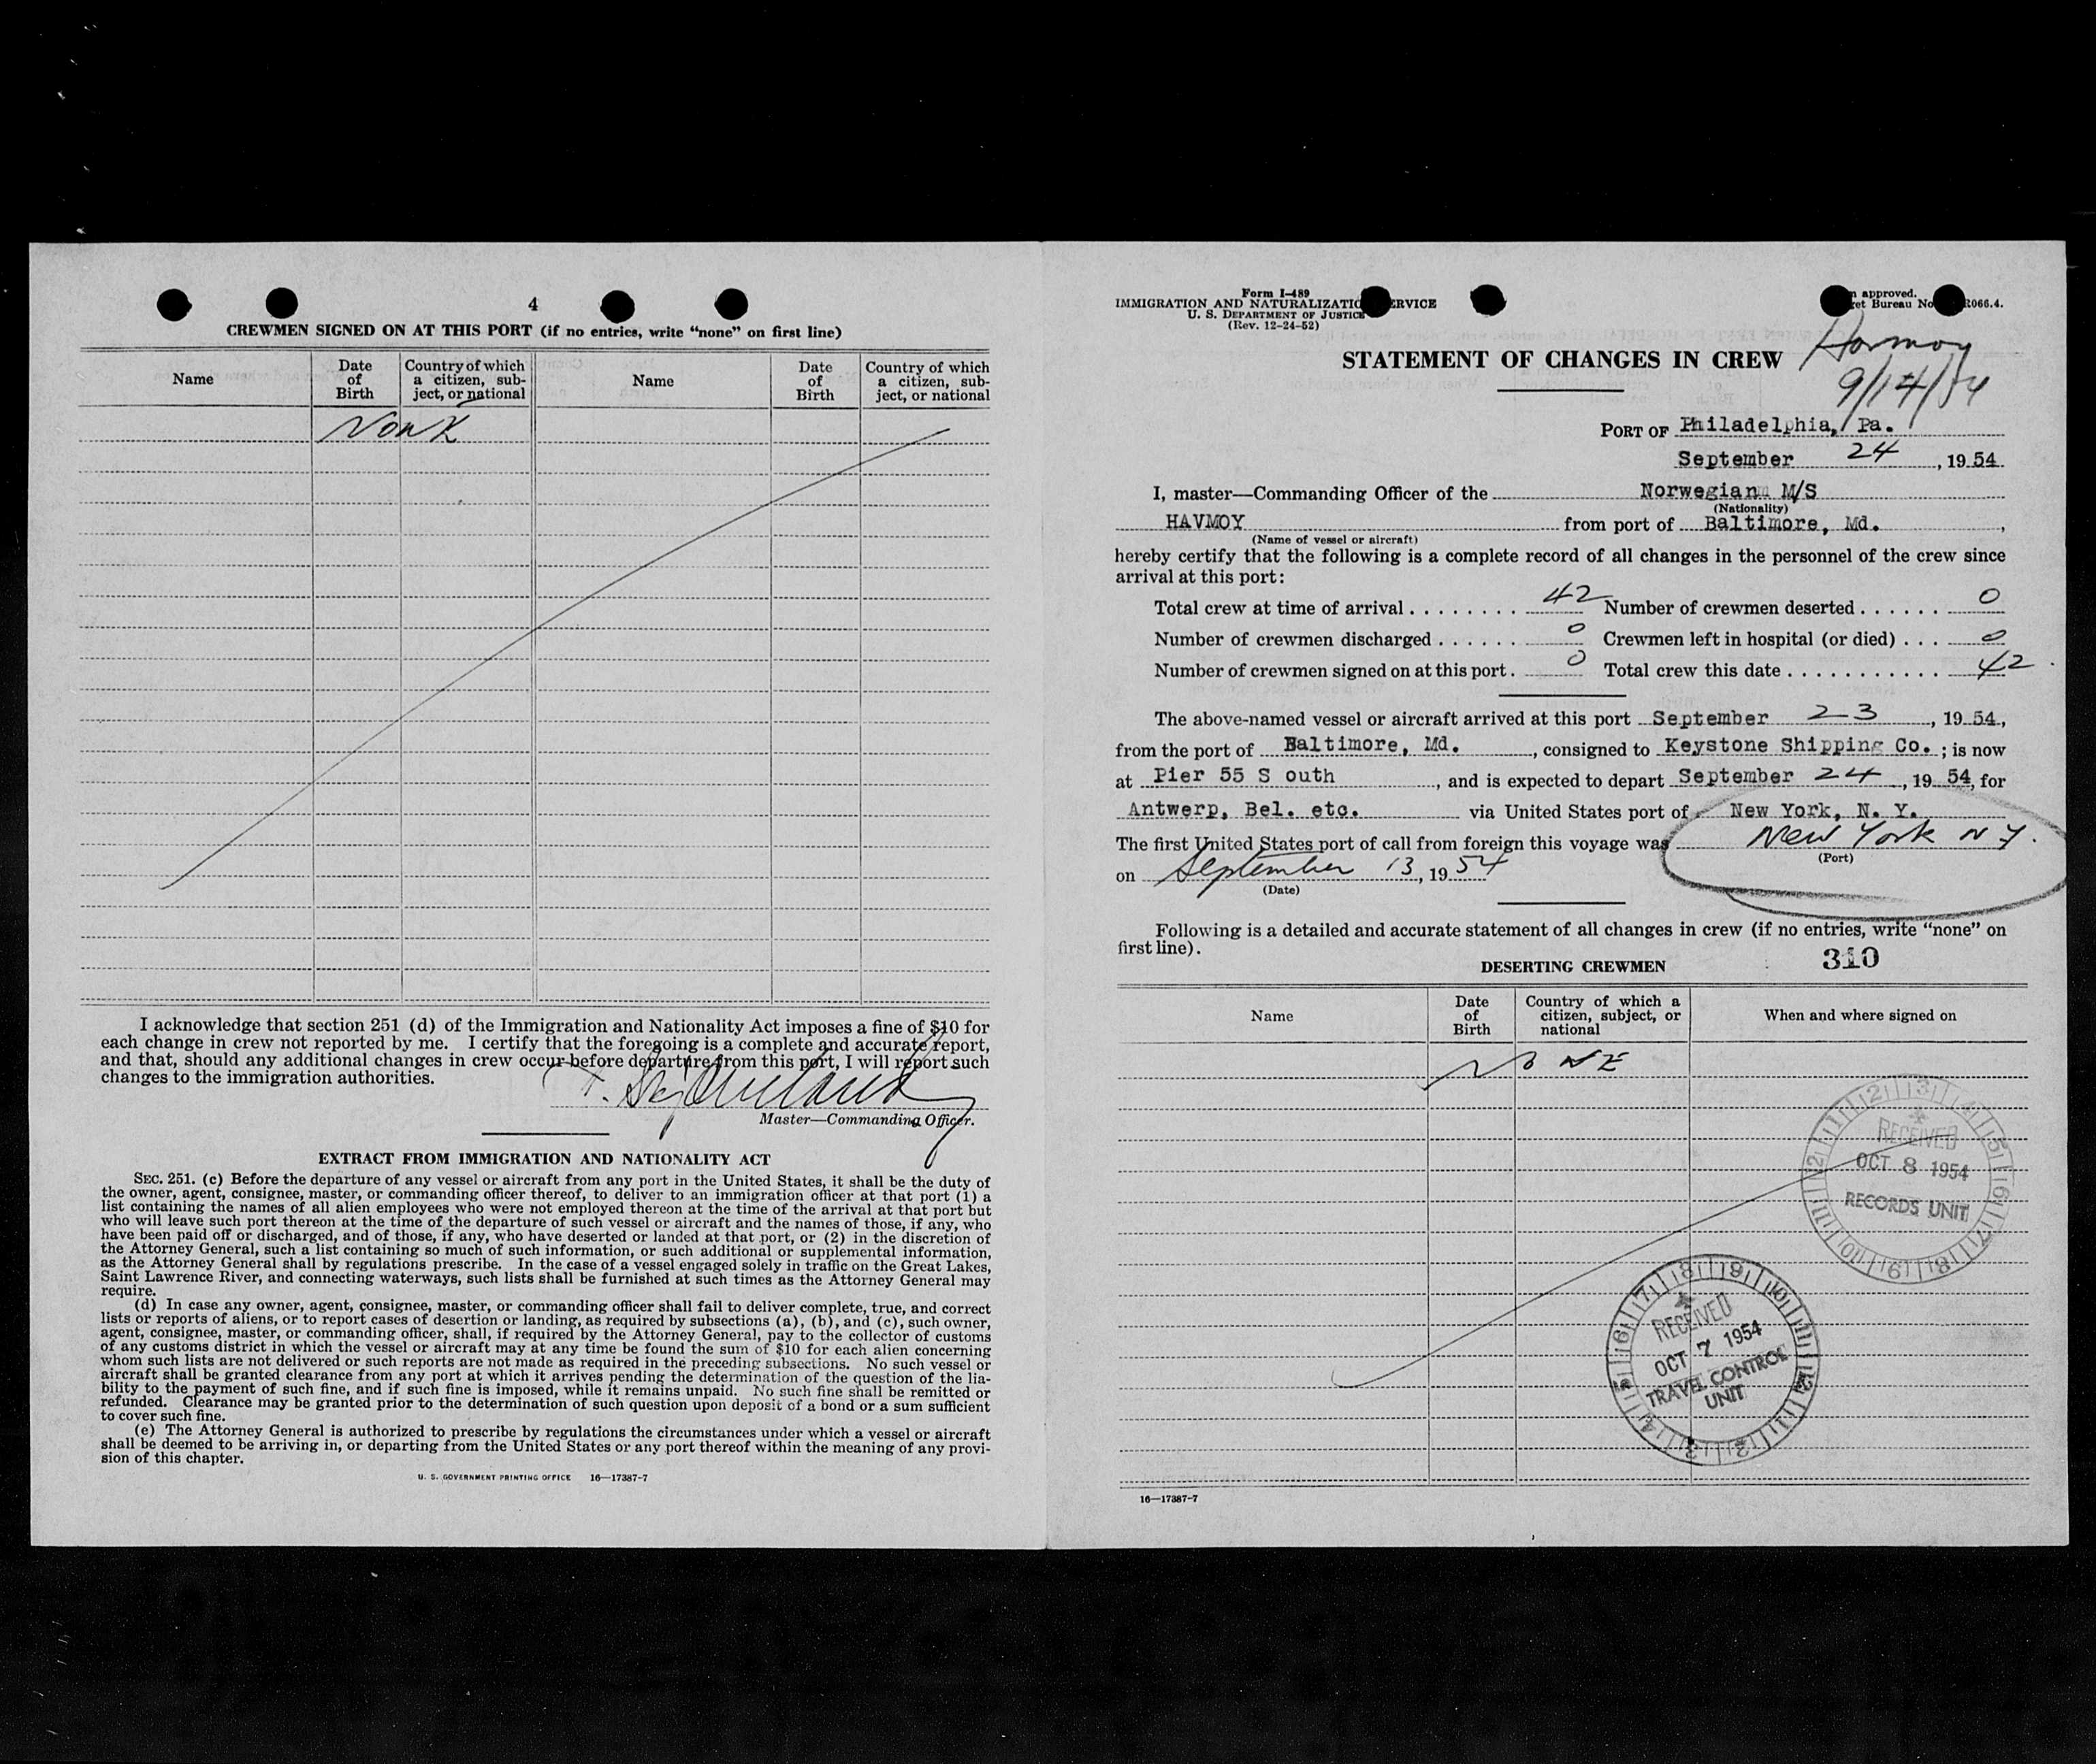 4
CREWMEN SIGNED ON AT THIS PORT (if no entries, write "none" on first line)
Name
Date of Birth
Country of which a citizen, sub-
ject, or national
Name
Date of Birth
Country of which a citizen, sub-
ject, or national
I acknowledge that section 251 (d) of the Immigration and Nationality Act imposes a fine of $10 for
each change in crew not reported by me. I certify that the foregoing is a complete and accurate report,
and that, should any additional changes in crew occur before departure from this port, I will report such
changes to the immigration authorities.
Master—Commanding Officer.
EXTRACT FROM IMMIGRATION AND NATIONALITY ACT
SEC. 251. (c) Before the departure of any vessel or aircraft from any port in the United States, it shall be the duty of
the owner, agent, consignee, master, or commanding officer thereof, to deliver to an immigration officer at that port (1) a
list containing the names of all alien employees who were not employed thereon at the time of the arrival at that port but
who will leave such port thereon at the time of the departure of such vessel or aircraft and the names of those, if any, who
have been paid off or discharged, and of those, if any, who have deserted or landed at that port, or (2) in the discretion of
the Attorney General, such a list containing so much of such information, or such additional or supplemental information,
as the Attorney General shall by regulations prescribe. In the case of a vessel engaged solely in traffic on the Great Lakes,
Saint Lawrence River, and connecting waterways, such lists shall be furnished at such times as the Attorney General may
require.
(d) In case any owner, agent, consignee, master, or commanding officer shall fail to deliver complete, true, and correct
lists or reports of aliens, or to report cases of desertion or landing, as required by subsections (a), (b), and (c), such owner,
agent, consignee, master, or commanding officer, shall, if required by the Attorney General, pay to the collector of customs
of any customs district in which the vessel or aircraft may at any time be found the sum of $10 for each alien concerning
whom such lists are not delivered or such reports are not made as required in the preceding subsections. No such vessel or
aircraft shall be granted clearance from any port at which it arrives pending the determination of the question of the lia-
bility to the payment of such fine, and if such fine is imposed, while it remains unpaid. No such fine shall be remitted or
refunded. Clearance may be granted prior to the determination of such question upon deposit of a bond or a sum sufficient
to cover such fine.
(e) The Attorney General is authorized to prescribe by regulations the circumstances under which a vessel or aircraft
shall be deemed to be arriving in, or departing from the United States or any port thereof within the meaning of any provi-
sion of this chapter.
U. S. GOVERNMENT PRINTING OFFICE 16—17387-7
Form I-489
IMMIGRATION AND NATURALIZATIO ERVICE
U. S. DEPARTMENT OF JUSTICE
(Rev. 12-24-52)
approved.
et Bureau No 066.4.
STATEMENT OF CHANGES IN CREW
9/14/54
PORT OF Philadelphia, Pa.
September 24, 1954
I, master—Commanding Officer of the Norwegian M/S
(Nationality)
HAVMOY from port of Baltimore, Md.,
(Name of vessel or aircraft)
hereby certify that the following is a complete record of all changes in the personnel of the crew since
arrival at this port:
Total crew at time of arrival . . . . . . . . 42 Number of crewmen deserted . . . . . . 0
Number of crewmen discharged . . . . . . 0 Crewmen left in hospital (or died) . . . 0
Number of crewmen signed on at this port . 0 Total crew this date . . . . . . . . . . . 42
The above-named vessel or aircraft arrived at this port September 23, 1954,
from the port of Baltimore, Md., consigned to Keystone Shipping Co.; is now
at Pier 55 S outh, and is expected to depart September 24, 1954, for
Antwerp, Bel. etc. via United States port of New York, N. Y.
The first United States port of call from foreign this voyage was New York N Y.
(Port)
on September 13, 1954
(Date)
Following is a detailed and accurate statement of all changes in crew (if no entries, write "none" on
first line).
310
DESERTING CREWMEN
Name
Date of Birth
Country of which a citizen, subject, or national
When and where signed on
NONE
RECEIVED
OCT 8 1954
RECORDS UNIT
RECEIVED
OCT 7 1954
TRAVEL CONTROL
UNIT
16—17387-7